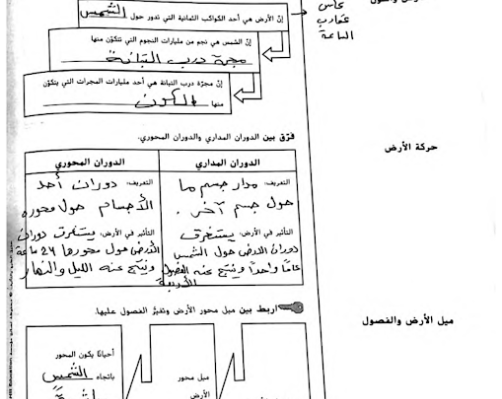 إنّ الأرض هي أحد الكواكب الثمانية التي تدور حول الشمس
عكس
عقارب
الساعة
إنّ الشمس هي نجم من مليارات النجوم التي تتكوّن منها
مجرة درب التبانة
إنّ مجرّة درب التبانة هي أحد مليارات المجرات التي يتكوّن
منها الكون
فرّق بين الدوران المداري والدوران المحوري.
حركة الأرض
الدوران المداري
التعريف: مدار جسم ما
حول جسم آخر.
التأثير في الأرض: يستغرق
دوران الأرض حول الشمس
عامًا واحدًا وينتج عنه الفصول
الأربعة
الدوران المحوري
التعريف: دوران أحد
الأجسام حول محوره
التأثير في الأرض: يستغرق دوران
الأرض حول محورها 24 ساعة
وينتج عنه الليل والنهار
اربط بين ميل محور الأرض وتغيّر الفصول عليها.
ميل الأرض والفصول
ميل محور
الأرض
أحيانًا يكون المحور
باتجاه الشمس